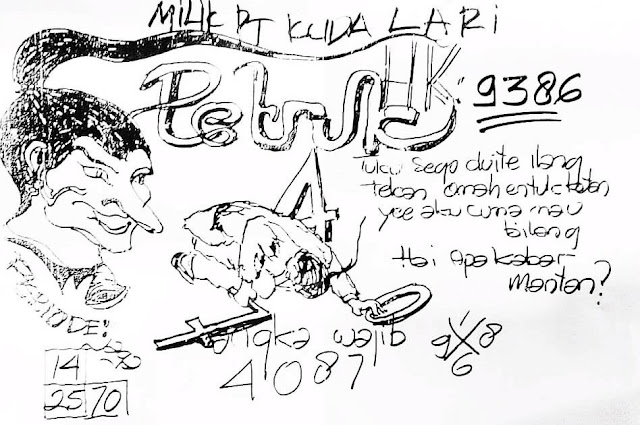 KUDA LARI
Petruk
HK: 9386
4
Tuku sego duite ilang
tekan omah entuk
yee aku cuma mau
bilang
Hai Apa kabar
Mantan?
PERIODE:
angka wajib
4087
9 1 8
6
14
25 70